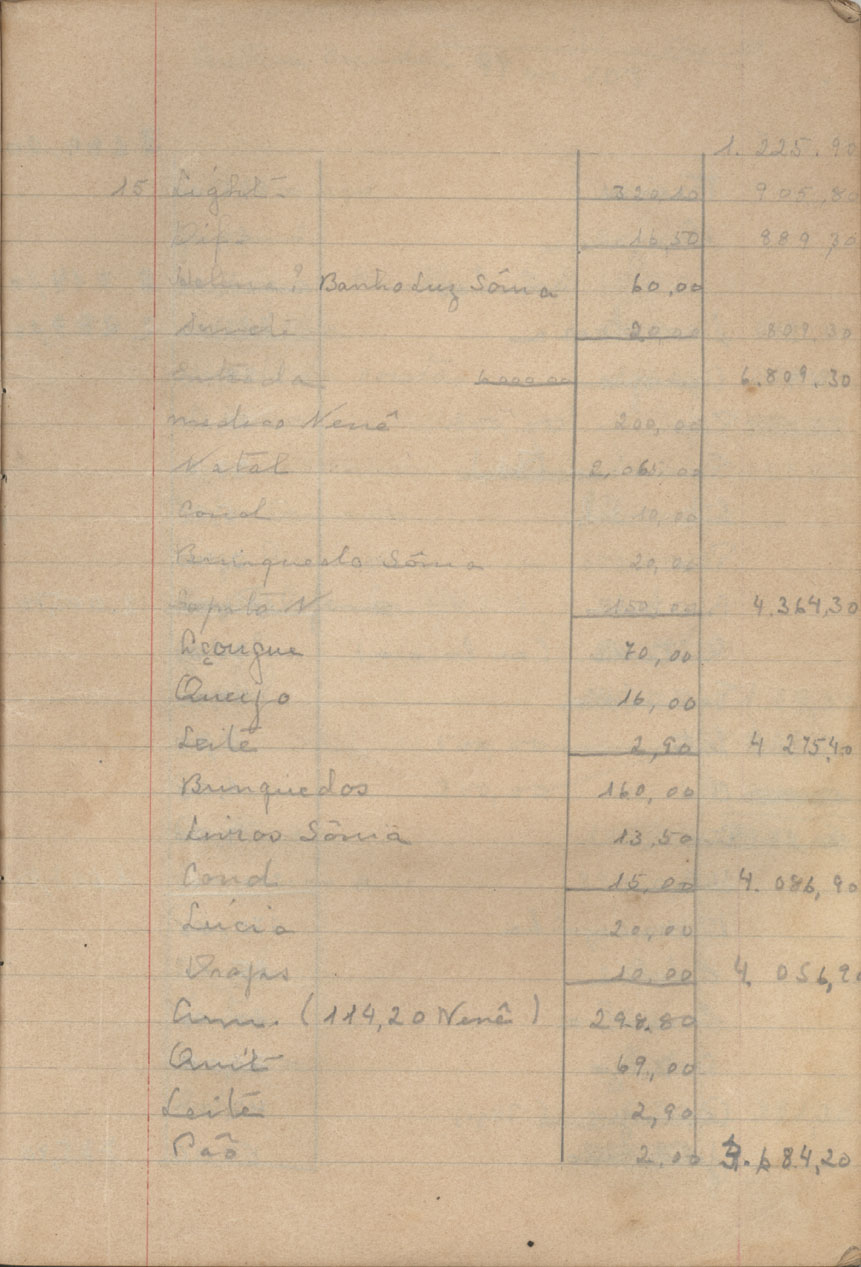 1.225.90
15 Light 320,10 905,80
16,50 889,30
Helena? Banho Luz Sônia 60,00
20,00 809,30
Entrada 6.000,00 6.809.30
medico Nenê 200,00
Natal 2,065.00
Cond 10,00
Brinquedo Sônia 20,00
Sapato N 150,00 4.364,30
Açougue 70,00
Queijo 16,00
Leite 2,90 4 275,40
Brinquedos 160,00
Livros Sônia 13,50
Cond 15,00 4.086,90
Lúcia 20,00
Drops 10,00 4.056,90
Arm. (114,20 Nenê) 298.80
Quit 69,00
Leite 2,90
Paõ 2,00 3.684,20